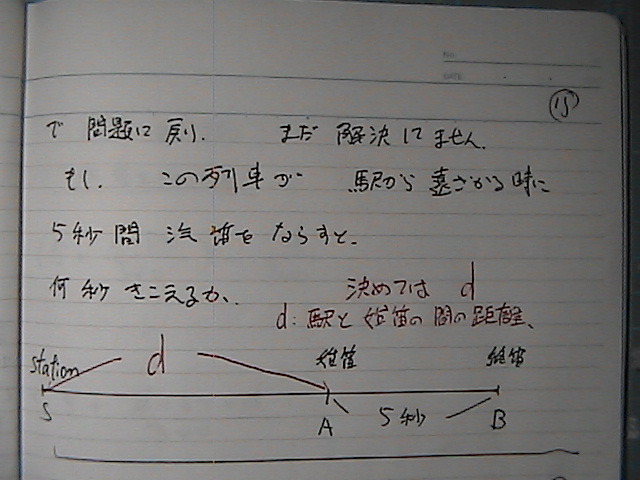 NO.
DATE
15
で 問題に 戻り. まだ 解決してません.
もし. この列車が 駅から 遠ざかる時に
5秒間 汽笛を ならすと.
何秒 きこえるか. 決めては d
d: 駅と 始笛の間の距離.
Station d 始笛 終笛
S A 5秒 B